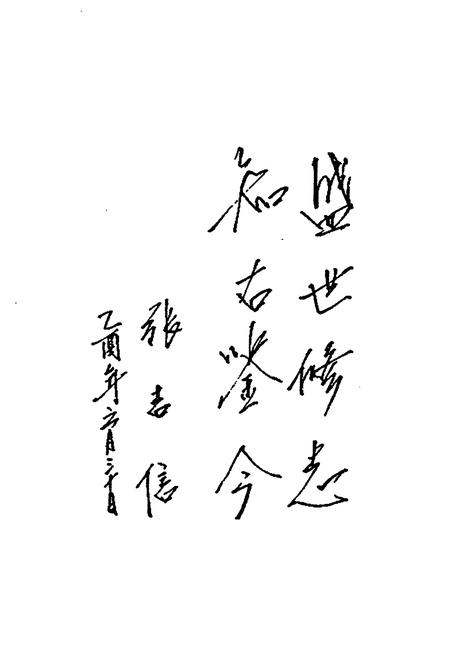 盛世修志
知古鉴今
张志信
乙酉年六月三十日